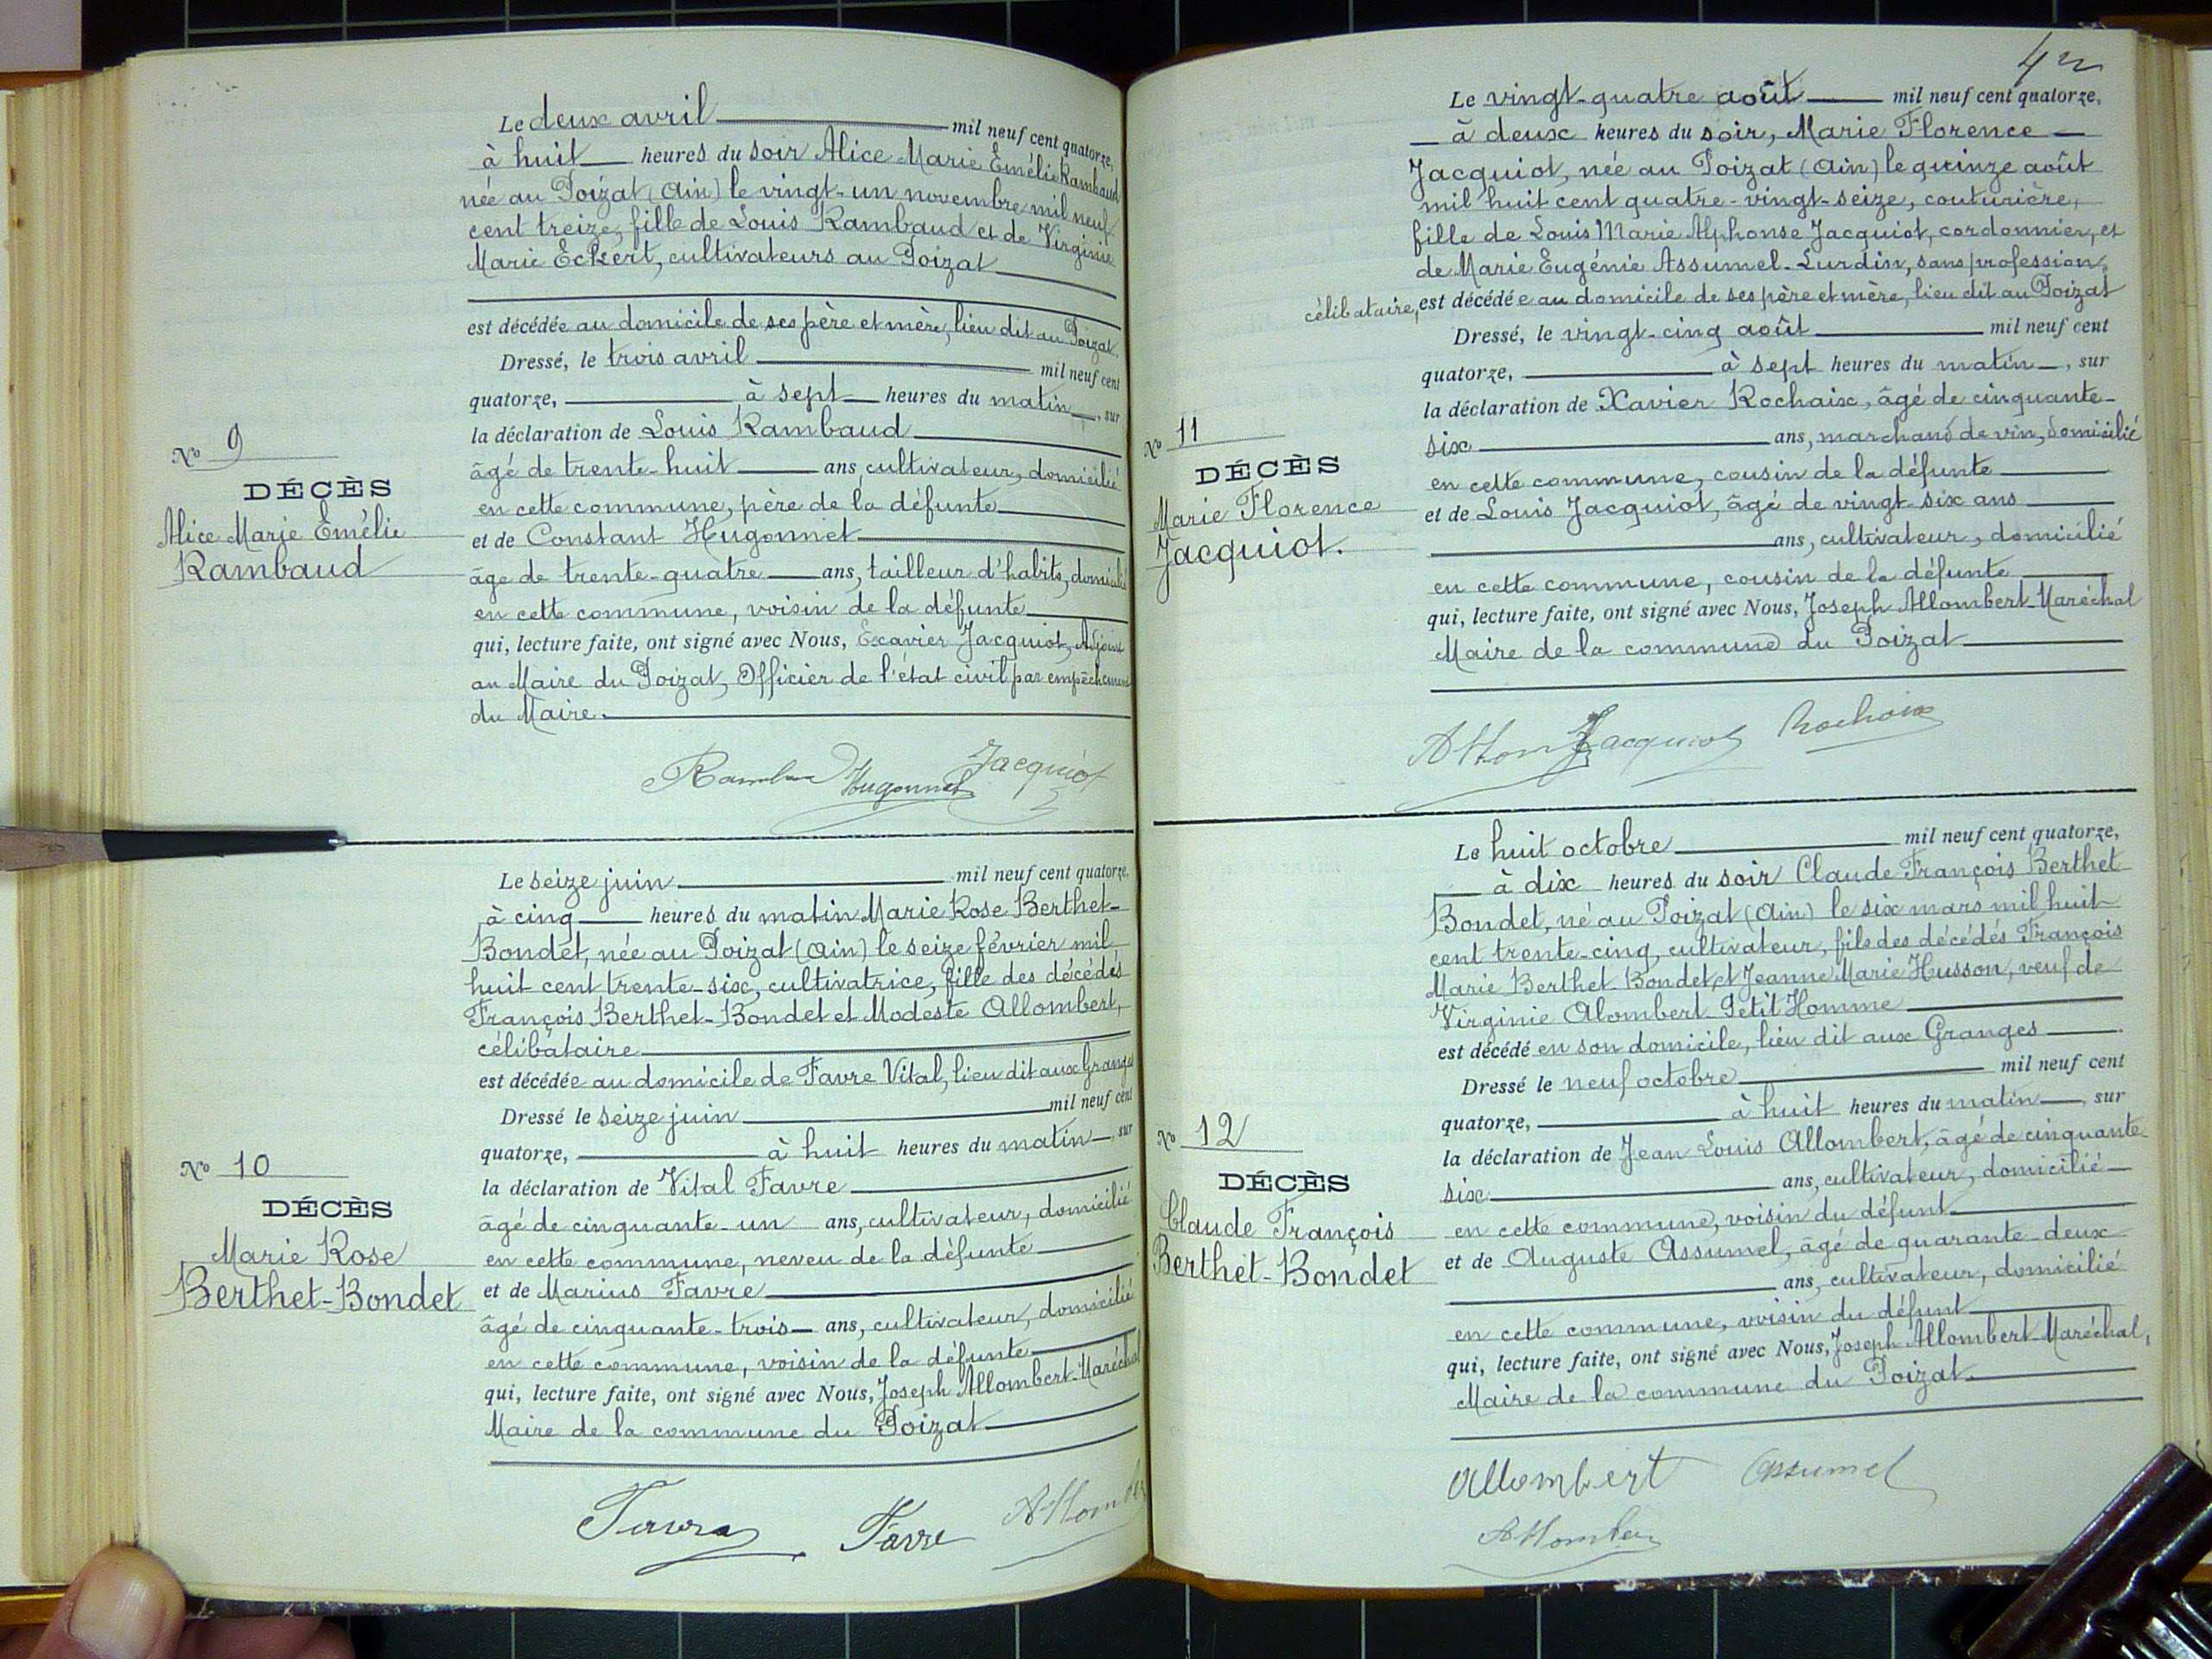 Le deux avril mil neuf cent quatorze,
à huit heures du soir Alice Marie Emélie Rambaud
née au Poizat (Ain) le vingt-un novembre mil neuf
cent treize, fille de Louis Rambaud et de Virginie
Marie Eckert, cultivateurs au Poizat
est décédée au domicile de ses père et mère, lieu dit au Poizat.
Dressé, le trois avril mil neuf cent
quatorze, à sept heures du matin, sur
la déclaration de Louis Rambaud
âgé de trente-huit ans, cultivateur, domicilié
en cette commune, père de la défunte
et de Constant Hugonnet
âge de trente-quatre ans, tailleur d'habits, domicilié
en cette commune, voisin de la défunte
qui, lecture faite, ont signé avec Nous, Excavier Jacquiot, Adjoint
au Maire du Poizat, Officier de l'état civil par empêchement
du Maire.
Hugonnet Jacquiot
No 9
DÉCÈS
Alice Marie Emélie
Rambaud
Le seize juin mil neuf cent quatorze,
à cinq heures du matin Marie Rose Berthet-
Bondet, née au Poizat (Ain) le seize février mil
huit cent trente-six, cultivatrice, fille des décédés
François Berthet-Bondet et Modeste Allombert,
célibataire
est décédée au domicile de Favre Vital, lieu dit aux Granges
Dressé le seize juin mil neuf cent
quatorze, à huit heures du matin, sur
la déclaration de Vital Favre
âgé de cinquante-un ans, cultivateur, domicilié
en cette commune, neveu de la défunte
et de Marius Favre
âgé de cinquante-trois ans, cultivateur, domicilié
en cette commune, voisin de la défunte
qui, lecture faite, ont signé avec Nous, Joseph Allombert-Maréchal
Maire de la commune du Poizat
Favre
No 10
DÉCÈS
Marie Rose
Berthet-Bondet
Le vingt-quatre août mil neuf cent quatorze,
à deux heures du soir, Marie Florence
Jacquiot, née au Poizat (Ain) le quinze août
mil huit cent quatre-vingt-seize, couturière,
fille de Louis Marie Alphonse Jacquiot, cordonnier, et
de Marie Eugénie Assumel-Lurdin, sans profession,
célibataire, est décédée au domicile de ses père et mère, lieu dit au Poizat
Dressé, le vingt-cinq août mil neuf cent
quatorze, à sept heures du matin, sur
la déclaration de Xavier Rochaix, âgé de cinquante-
six ans, marchand de vin, domicilié
en cette commune, cousin de la défunte
et de Louis Jacquiot, âgé de vingt-six ans
ans, cultivateur, domicilié
en cette commune, cousin de la défunte
qui, lecture faite, ont signé avec Nous, Joseph Allombert-Maréchal
Maire de la commune du Poizat
Jacquiot Rochaix
No 11
DÉCÈS
Marie Florence
Jacquiot.
Le huit octobre mil neuf cent quatorze,
à dix heures du soir Claude François Berthet
Bondet, né au Poizat (Ain) le six mars mil huit
cent trente-cinq, cultivateur, fils des décédés François
Marie Berthet-Bondet et Jeanne Marie Husson, veuf de
Virginie Alombert Petit Homme
est décédé en son domicile, lieu dit aux Granges
Dressé le neuf octobre mil neuf cent
quatorze, à huit heures du matin, sur
la déclaration de Jean Louis Allombert, âgé de cinquante
six ans, cultivateur, domicilié
en cette commune, voisin du défunt
et de Auguste Assumel, âgé de quarante-deux
ans, cultivateur, domicilié
en cette commune, voisin du défunt
qui, lecture faite, ont signé avec Nous, Joseph Allombert-Maréchal,
Maire de la commune du Poizat.
Allombert Assumel
No 12
DÉCÈS
Claude François
Berthet-Bondet